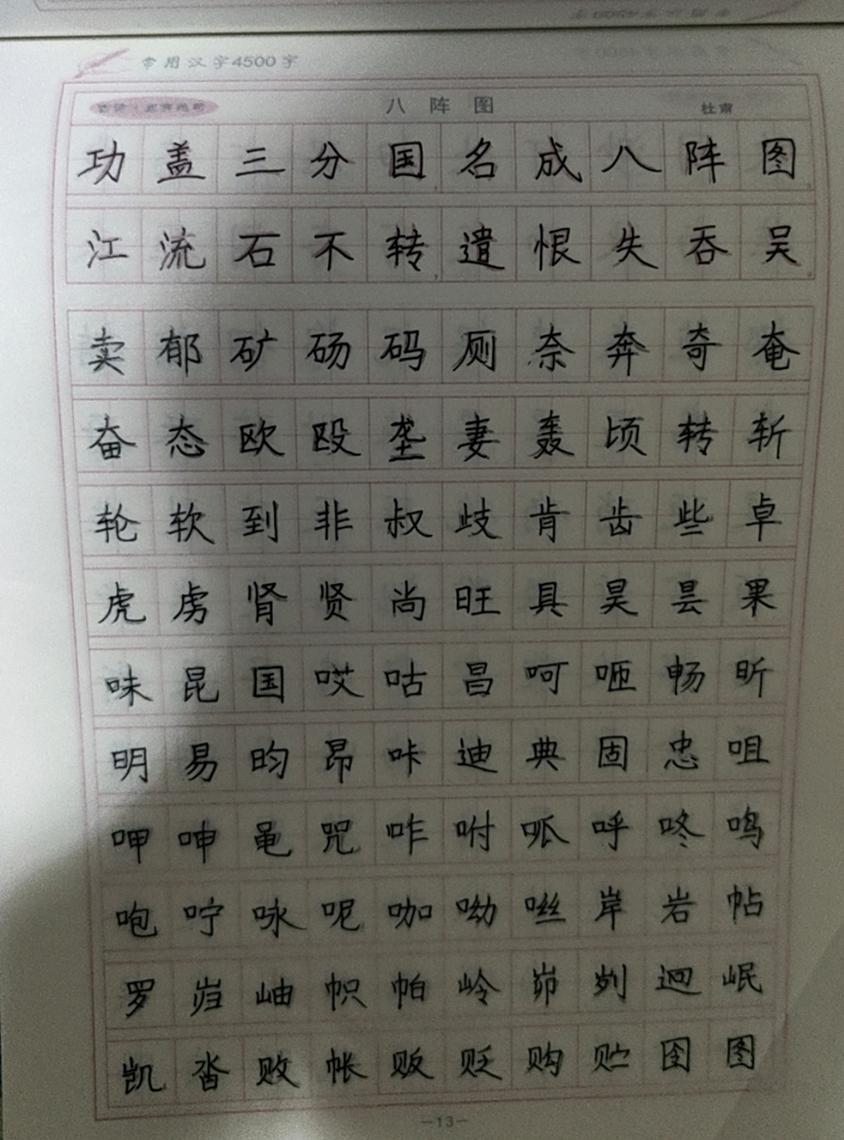 常用汉字4500字
八阵图 杜甫
功盖三分国,名成八阵图
江流石不转,遗恨失吞吴
卖郁矿砀码厕奈奔奇奄
奋态欧殴垄妻轰顷转斩
轮软到非叔歧肯齿些卓
虎虏肾贤尚旺具昊昙果
味昆国哎咕昌呵咂畅昕
明易昀昂咔迪典固忠咀
呷呻黾咒咋咐呱呼咚鸣
咆咛咏呢咖呦咝岸岩帖
罗岿岫帜帕岭峁刿迥岷
凯沓败帐贩贬购贮图